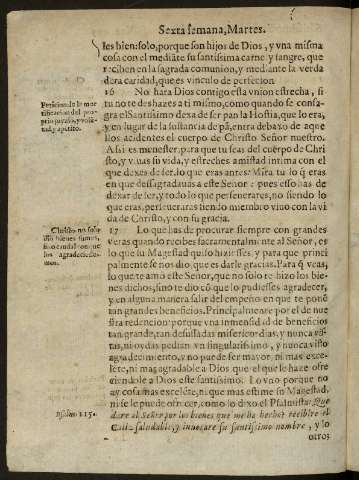 Sexta semana, Martes.
les bien: solo, porque son hijos de Dios, y vna misma
cosa con el mediāte su santissima carne y sangre, que
reciben en la sagrada comunion, y mediante la verda
dera caridad, que es vinculo de perfecion
16 No hara Dios contigo esta vnion estrecha, si
tu no te deshazes a ti mismo, como quando se consa-
gra el Santissimo dexa de ser pan la Hostia, que lo era,
y en lugar de la sustancia de pā, entra debaxo de aque
llos acidentes el cuerpo de Christo Señor nuestro.
Assi es menester, para que tu seas del cuerpo de Chri
sto, y viuas su vida, y estreches amistad intima con el
que dexes de ser, lo que eras antes: Mira tu lo q̄ eras
en que desagradauas a este Señor: pues esso has de
dexar de ser, y todo lo que perseuerares, no siendo lo
que eras, perseueraras siendo miembro viuo con la vi
da de Christo, y con su gracia.
17 Lo que has de procurar siempre con grandes
veras quando recibes sacramentalmente al Señor, es
lo que su Magestad quiso hizissses y para que princi
palmente se nos dio que es darle gracias. Para q̄ veas,
lo que te amo este Señor, que no solo te hizo los bie
nes dichos, sino te dio cō que lo pudiesses agradecer,
y en alguna manera salir del empeño en que te ponē
tan grandes beneficios. Principalmente por el de nue
stra redencion: porque vna inmensidad de beneficios
tan grande, tan desusadas misericordias, y nunca vis-
tas, ni oydas pedian vn singularissimo, y nunca visto
agradecimiento, y no puede ser mayor, ni mas exce-
lēte, ni mas agradable a Dios que el que le haze ofre
ciendole a Dios este santissimo. Lo vno porque no
ay cosa mas excelēte, ni que mas estime su Magestad,
ni se le puede ofrecer, como lo dixo el Psalmista: Que
dare al Señor por los bienes que me ha hecho? recibire el
Caliz saludable, y inuocare su santissimo nombre, y lo
otros
Christo no solo
Psalm. 115.